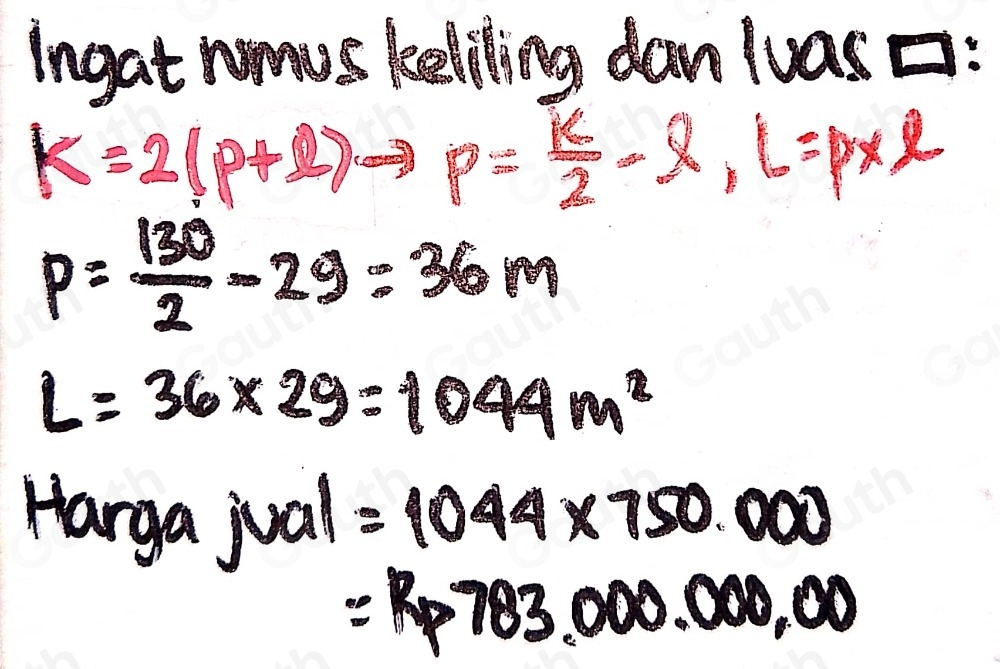 Ingat rumus keliling dan luas ▭:
K = 2(p+l) → p = K/2 - l, L = p×l
p = 130/2 - 29 = 36 m
L = 36 × 29 = 1044 m²
Harga jual = 1044 × 750.000
= Rp783.000.000,00